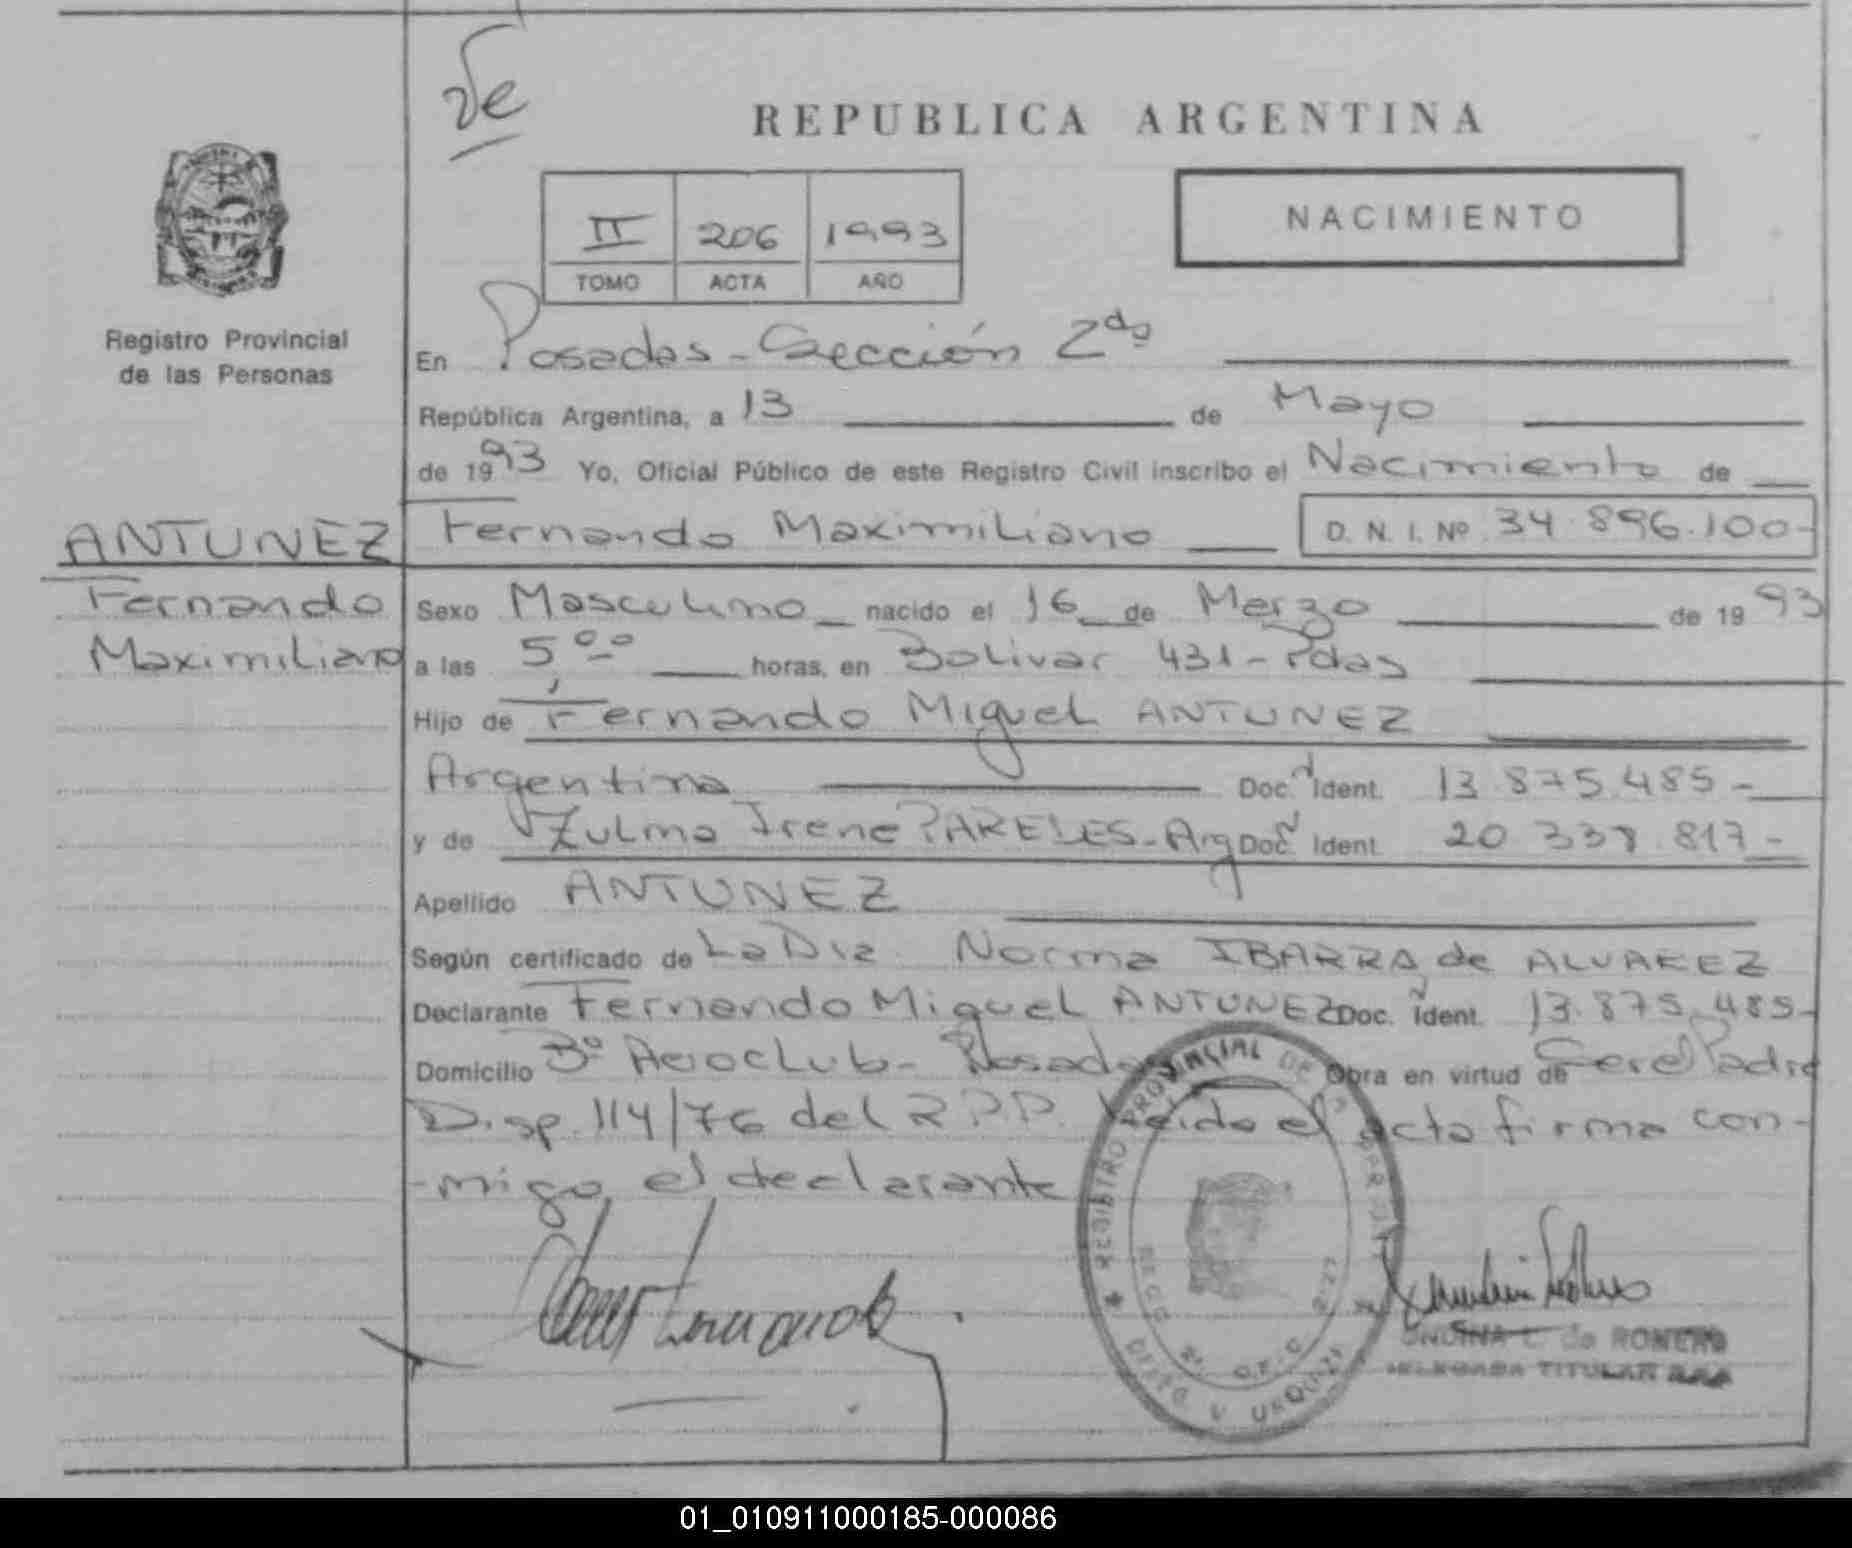 REPUBLICA ARGENTINA
II 206 1993
TOMO ACTA AÑO
NACIMIENTO
Registro Provincial
de las Personas
En Posadas - Sección 2da
República Argentina, a 13 de Mayo
de 1993 Yo, Oficial Público de este Registro Civil inscribo el Nacimiento de
ANTUNEZ
Fernando
Maximiliano
Fernando Maximiliano D. N. I. Nº 34.896.100-
Sexo Masculino nacido el 16 de Marzo de 1993
a las 5 00 horas, en Bolivar 431 - Pdas
Hijo de Fernando Miguel ANTUNEZ
Argentina Doc. d Ident. 13.875.485-
y de Zulma Irene PARELES - Arg Doc. d Ident. 20.338.817-
Apellido ANTUNEZ
Según certificado de La Dra. Norma IBARRA de ALVAREZ
Declarante Fernando Miguel ANTUNEZ Doc. d Ident. 13.875.485-
Domicilio Bº Aeroclub - Posadas Obra en virtud de Ser el Padre
Disp. 114/76 del R.P.P. Leída el acta firma con-
-migo el declarante
REGISTRO PROVINCIAL DE
ONDINA L. de ROMERO
DELEGADA TITULAR
01_010911000185-000086